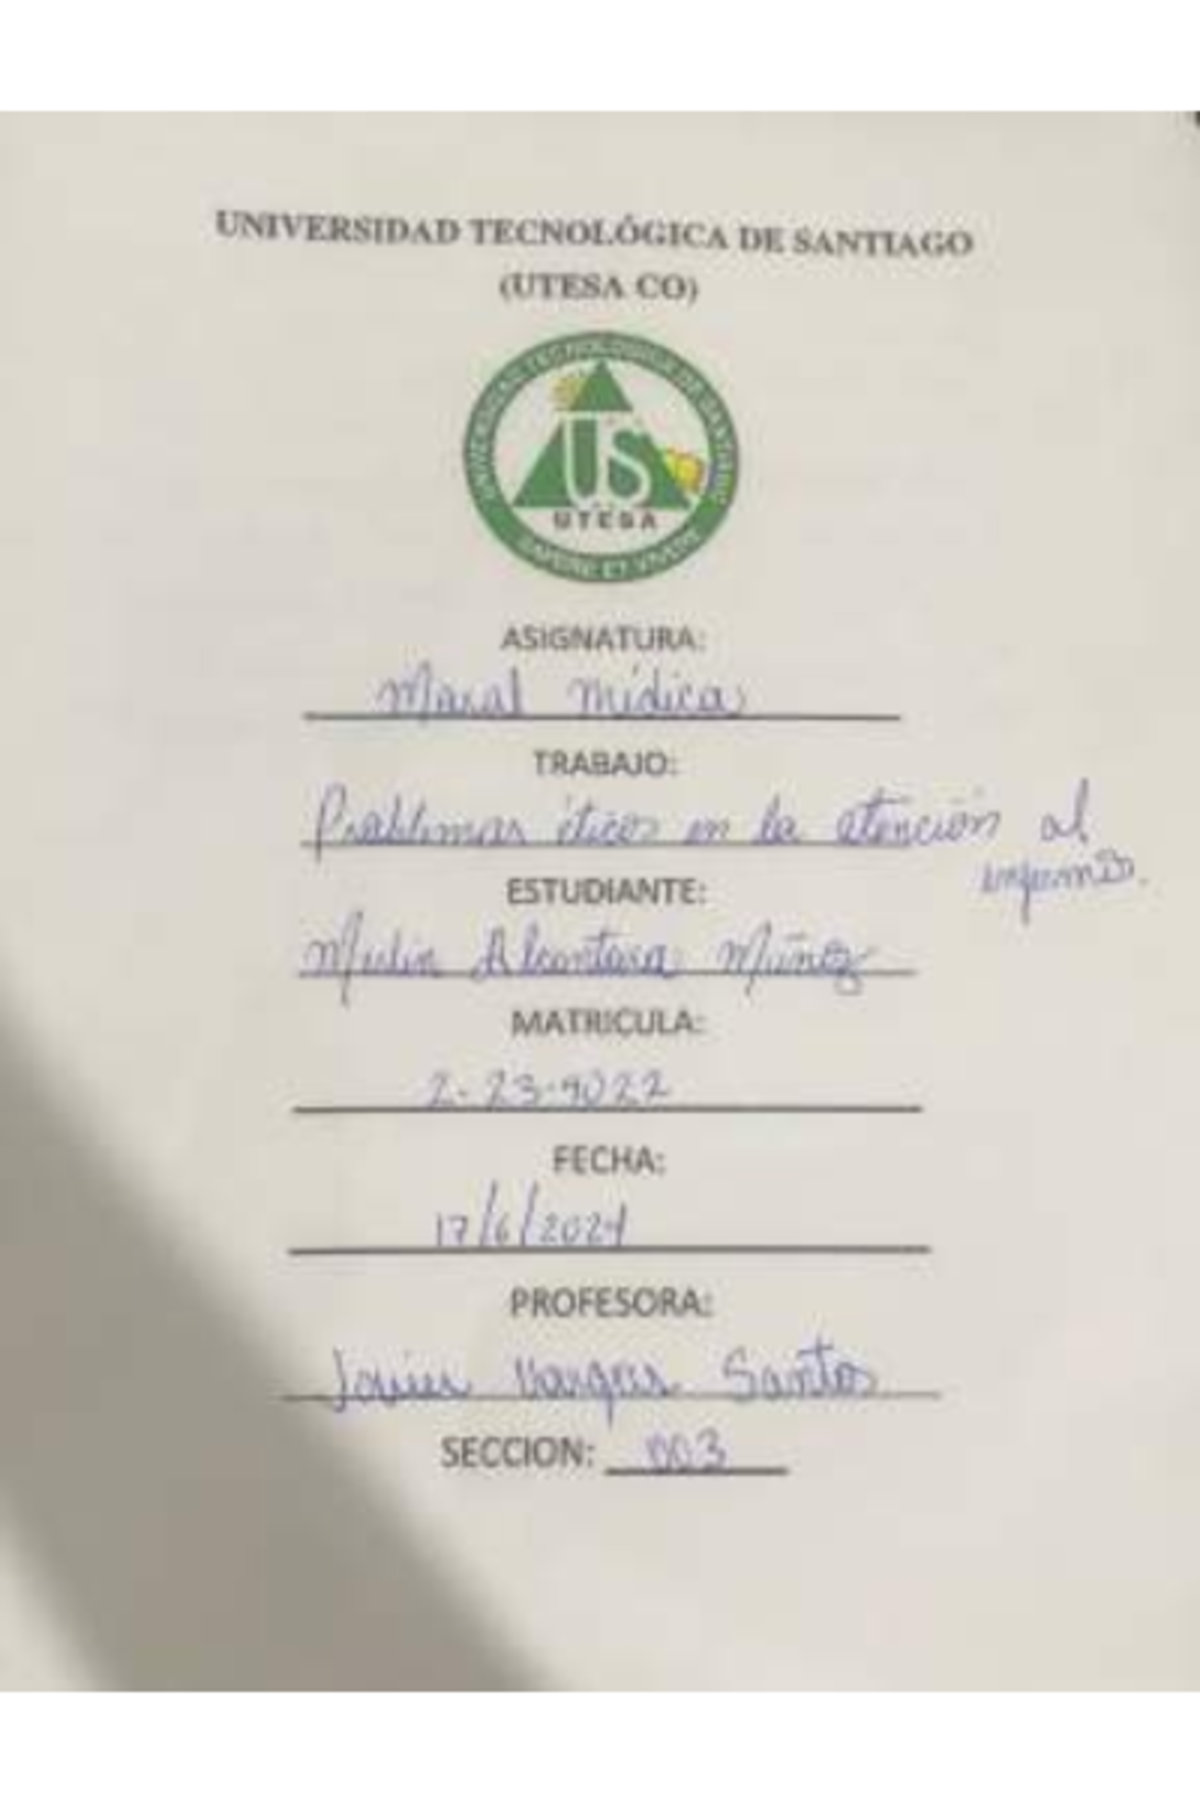 UNIVERSIDAD TECNOLÓGICA DE SANTIAGO
(UTESA CO)
UNIVERSIDAD TECNOLÓGICA DE SANTIAGO
US
UTESA
SAPERE ET VIVERE
ASIGNATURA:
Moral Médica
TRABAJO:
Problemas éticos en la atención al
enfermo.
ESTUDIANTE:
Alcantara Muñoz
MATRICULA:
2-23-9022
FECHA:
17/6/2024
PROFESORA:
Vargas Santos
SECCION: 003